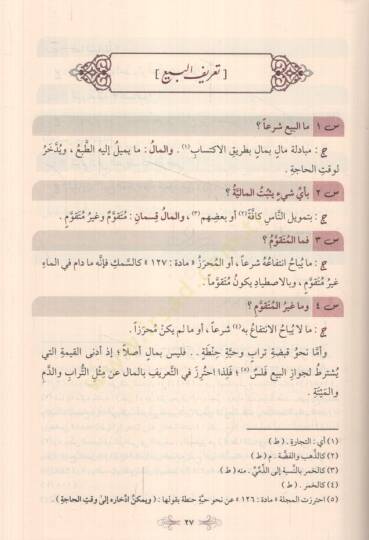 [ تعريف البيع ]
س ١ ما البيع شرعاً ؟
ج : مبادلة مالٍ بمالٍ بطريقِ الاكتسابِ(١) . والمالُ : ما يميلُ إليه الطَّبْعُ ، ويُدَّخَرُ
لوقتِ الحاجةِ .
س ٢ بأيِّ شيءٍ يَثْبُتُ الماليَّةُ ؟
ج : بتمويلِ النَّاسِ كافَّةً(٢) أو بعضِهم(٣) ، والمالُ قِسمانِ : مُتَقَوَّمٌ وغيرُ مُتَقَوَّمٍ .
س ٣ فما المُتَقَوَّمُ ؟
ج : ما يُباحُ انتفاعُهُ شرعاً ، أو المُحرَزُ « مادة : ١٢٧ » كالسَّمكِ فإنَّه ما دام في الماءِ
غيرُ مُتَقَوَّمٍ ، وبالاصطيادِ يكونُ مُتَقَوَّماً .
س ٤ وما غيرُ المُتَقَوَّمِ ؟
ج : ما لا يُباحُ الانتفاعُ به(٤) شرعاً ، أو ما لم يكنْ مُحرَزاً .
وأمَّا نحوُ قبضةِ ترابٍ وحبَّةِ حِنْطَةٍ .. فليس بمالٍ أصلاً ؛ إذ أدنى القيمةِ التي
يُشترَطُ لجوازِ البيعِ فَلْسٌ(٥) ؛ فلِذا احتُرِزَ في التَّعريفِ بالمالِ عن مِثْلِ التُّرابِ والدَّمِ
والمَيْتةِ .
(١) أي : التجارة . ( ط )
(٢) كالذَّهب والفضَّة . م ( ط )
(٣) كالخمر بالنِّسبة إلى الذِّمِّيِّ . منه ( ط )
(٤) كالخمر . ( ط )
(٥) احترزت المجلة « مادة : ١٢٦ » عن نحو حبَّة حنطة بقولها : ( ويمكنُ ادِّخاره إلى وقتِ الحاجةِ )
٢٧